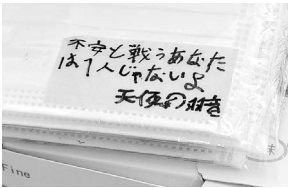 不安と戦うあなた
は1人じゃないよ
天使の囁き
Fine